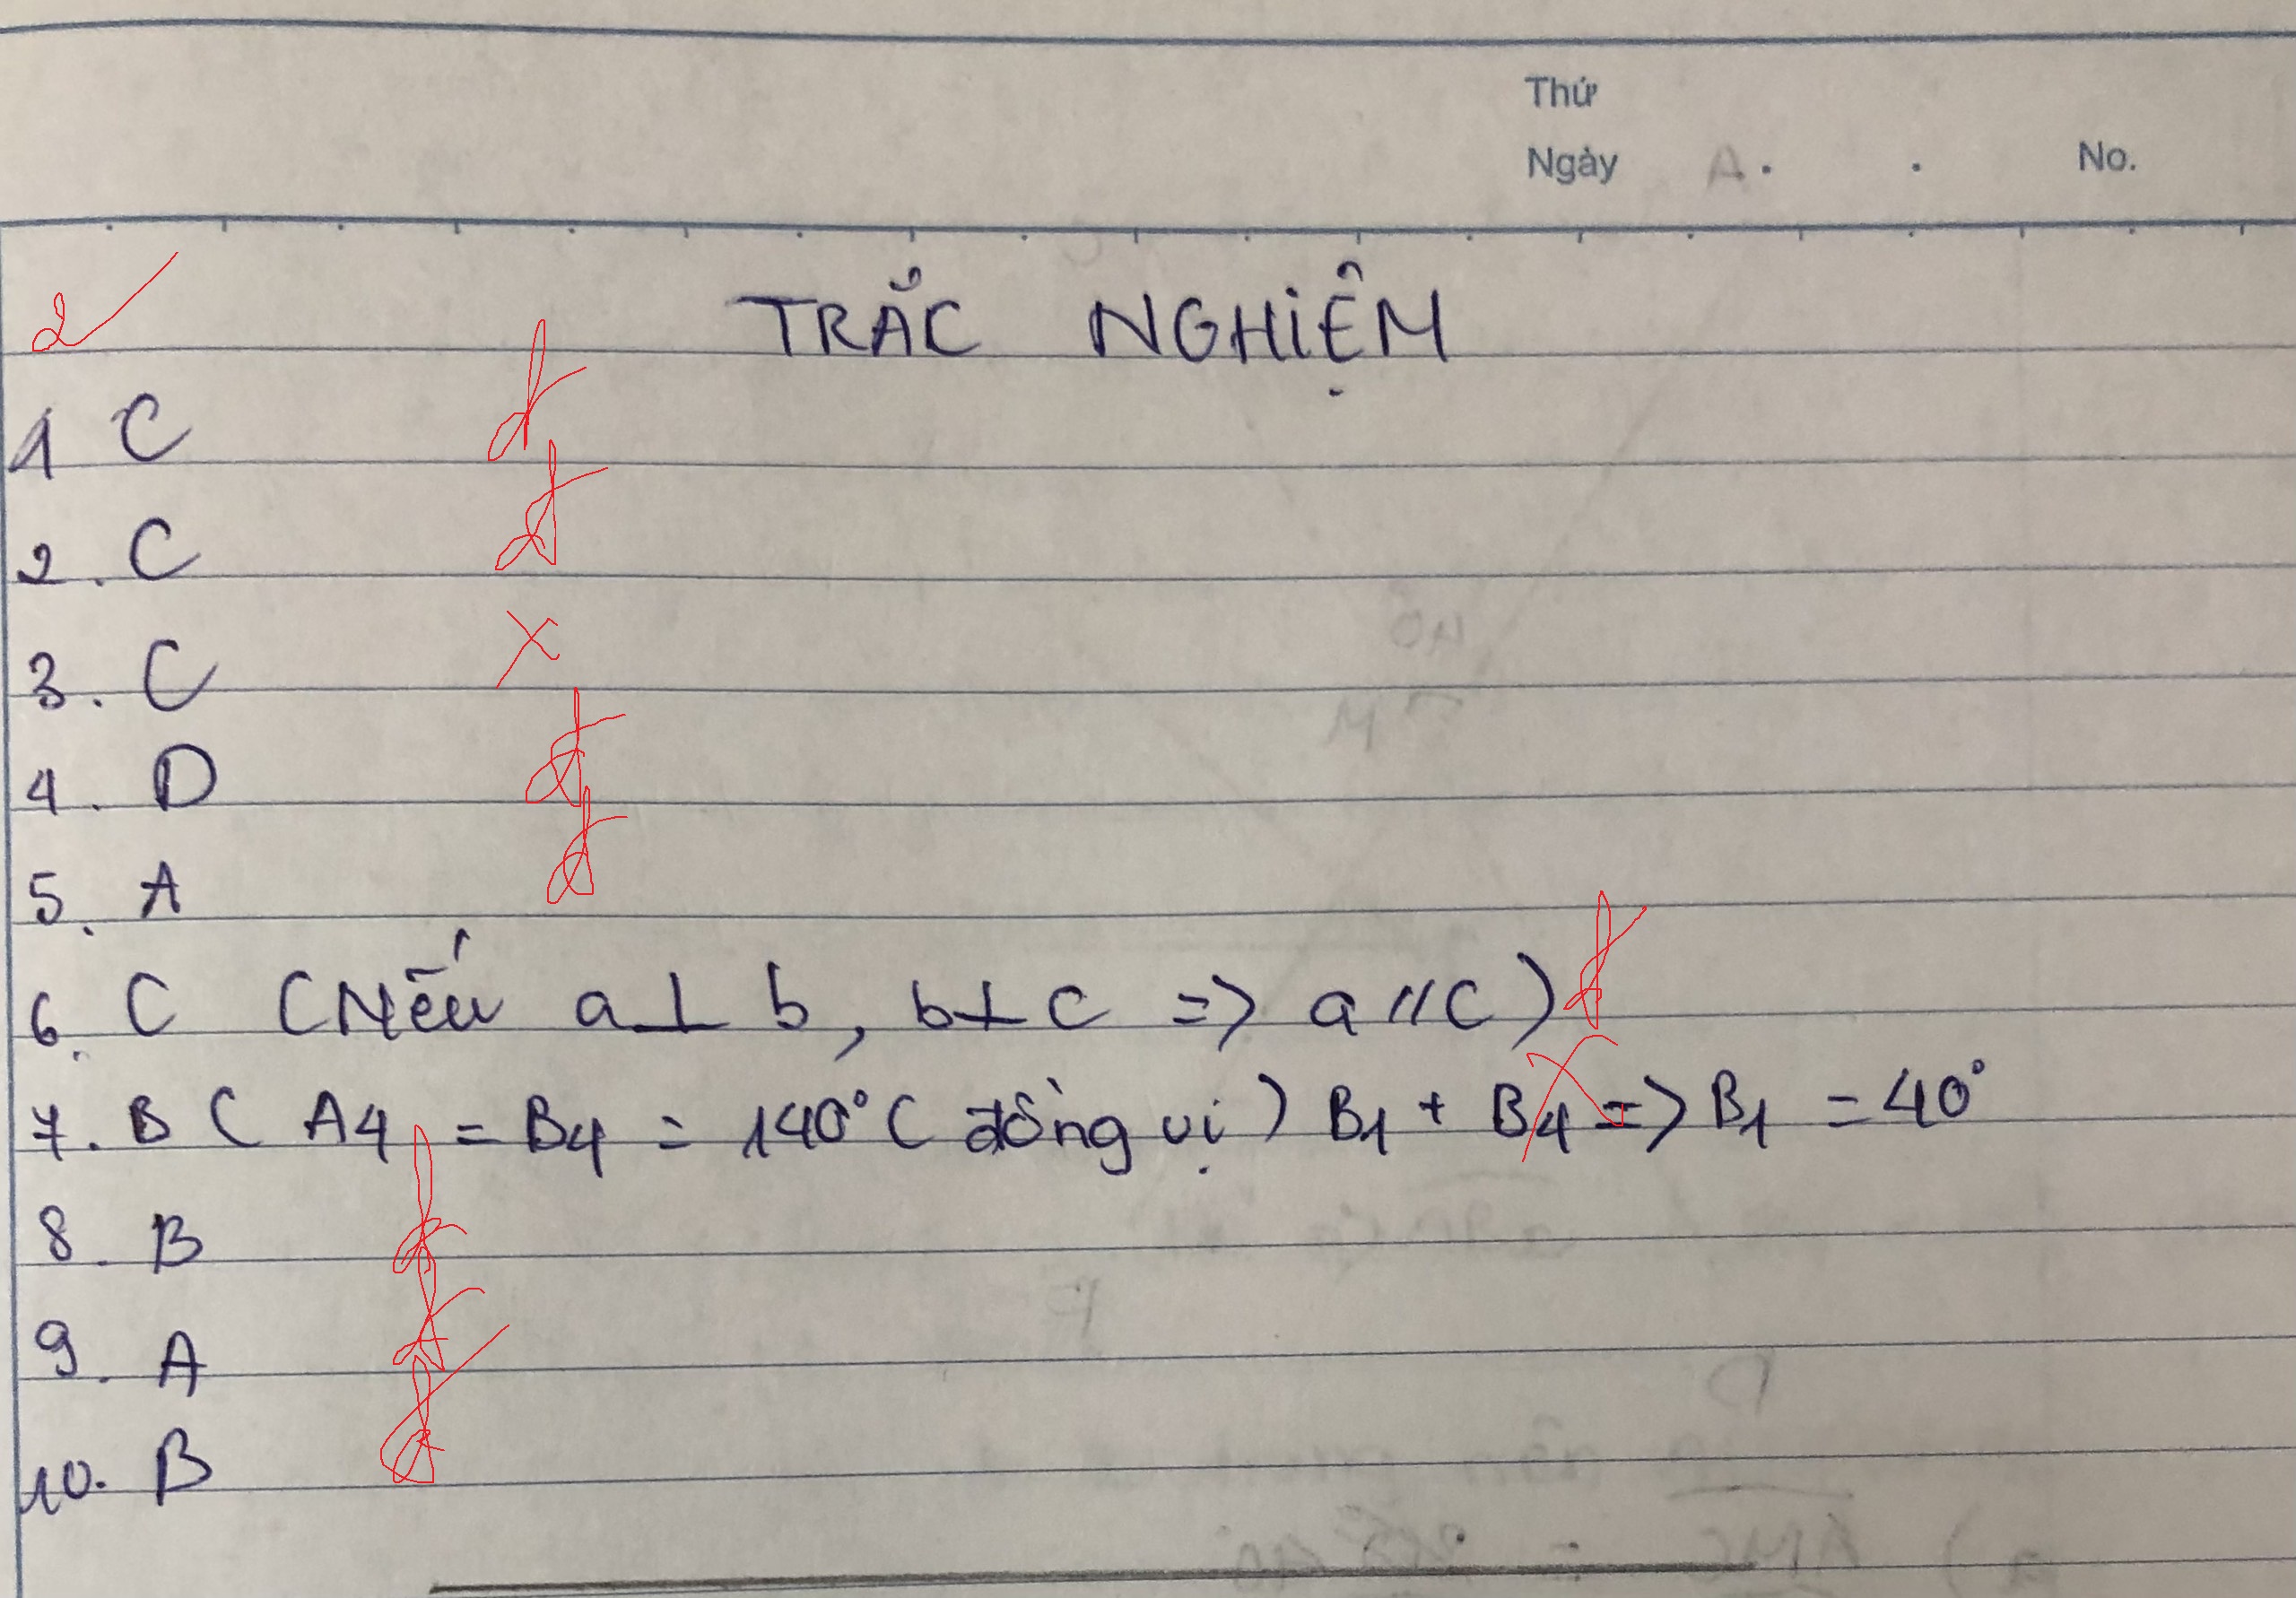 Thứ
Ngày . . No.
2
TRẮC NGHIỆM
1 C đ
2. C đ
3. C x
4. D đ
5. A đ
6. C (Nếu a⊥b, b⊥c => a // c) đ
7. B ( A4 = B4 = 140° ( đồng vị ) B1 + B4 => B1 = 40°
8. B đ
9. A đ
10. B đ